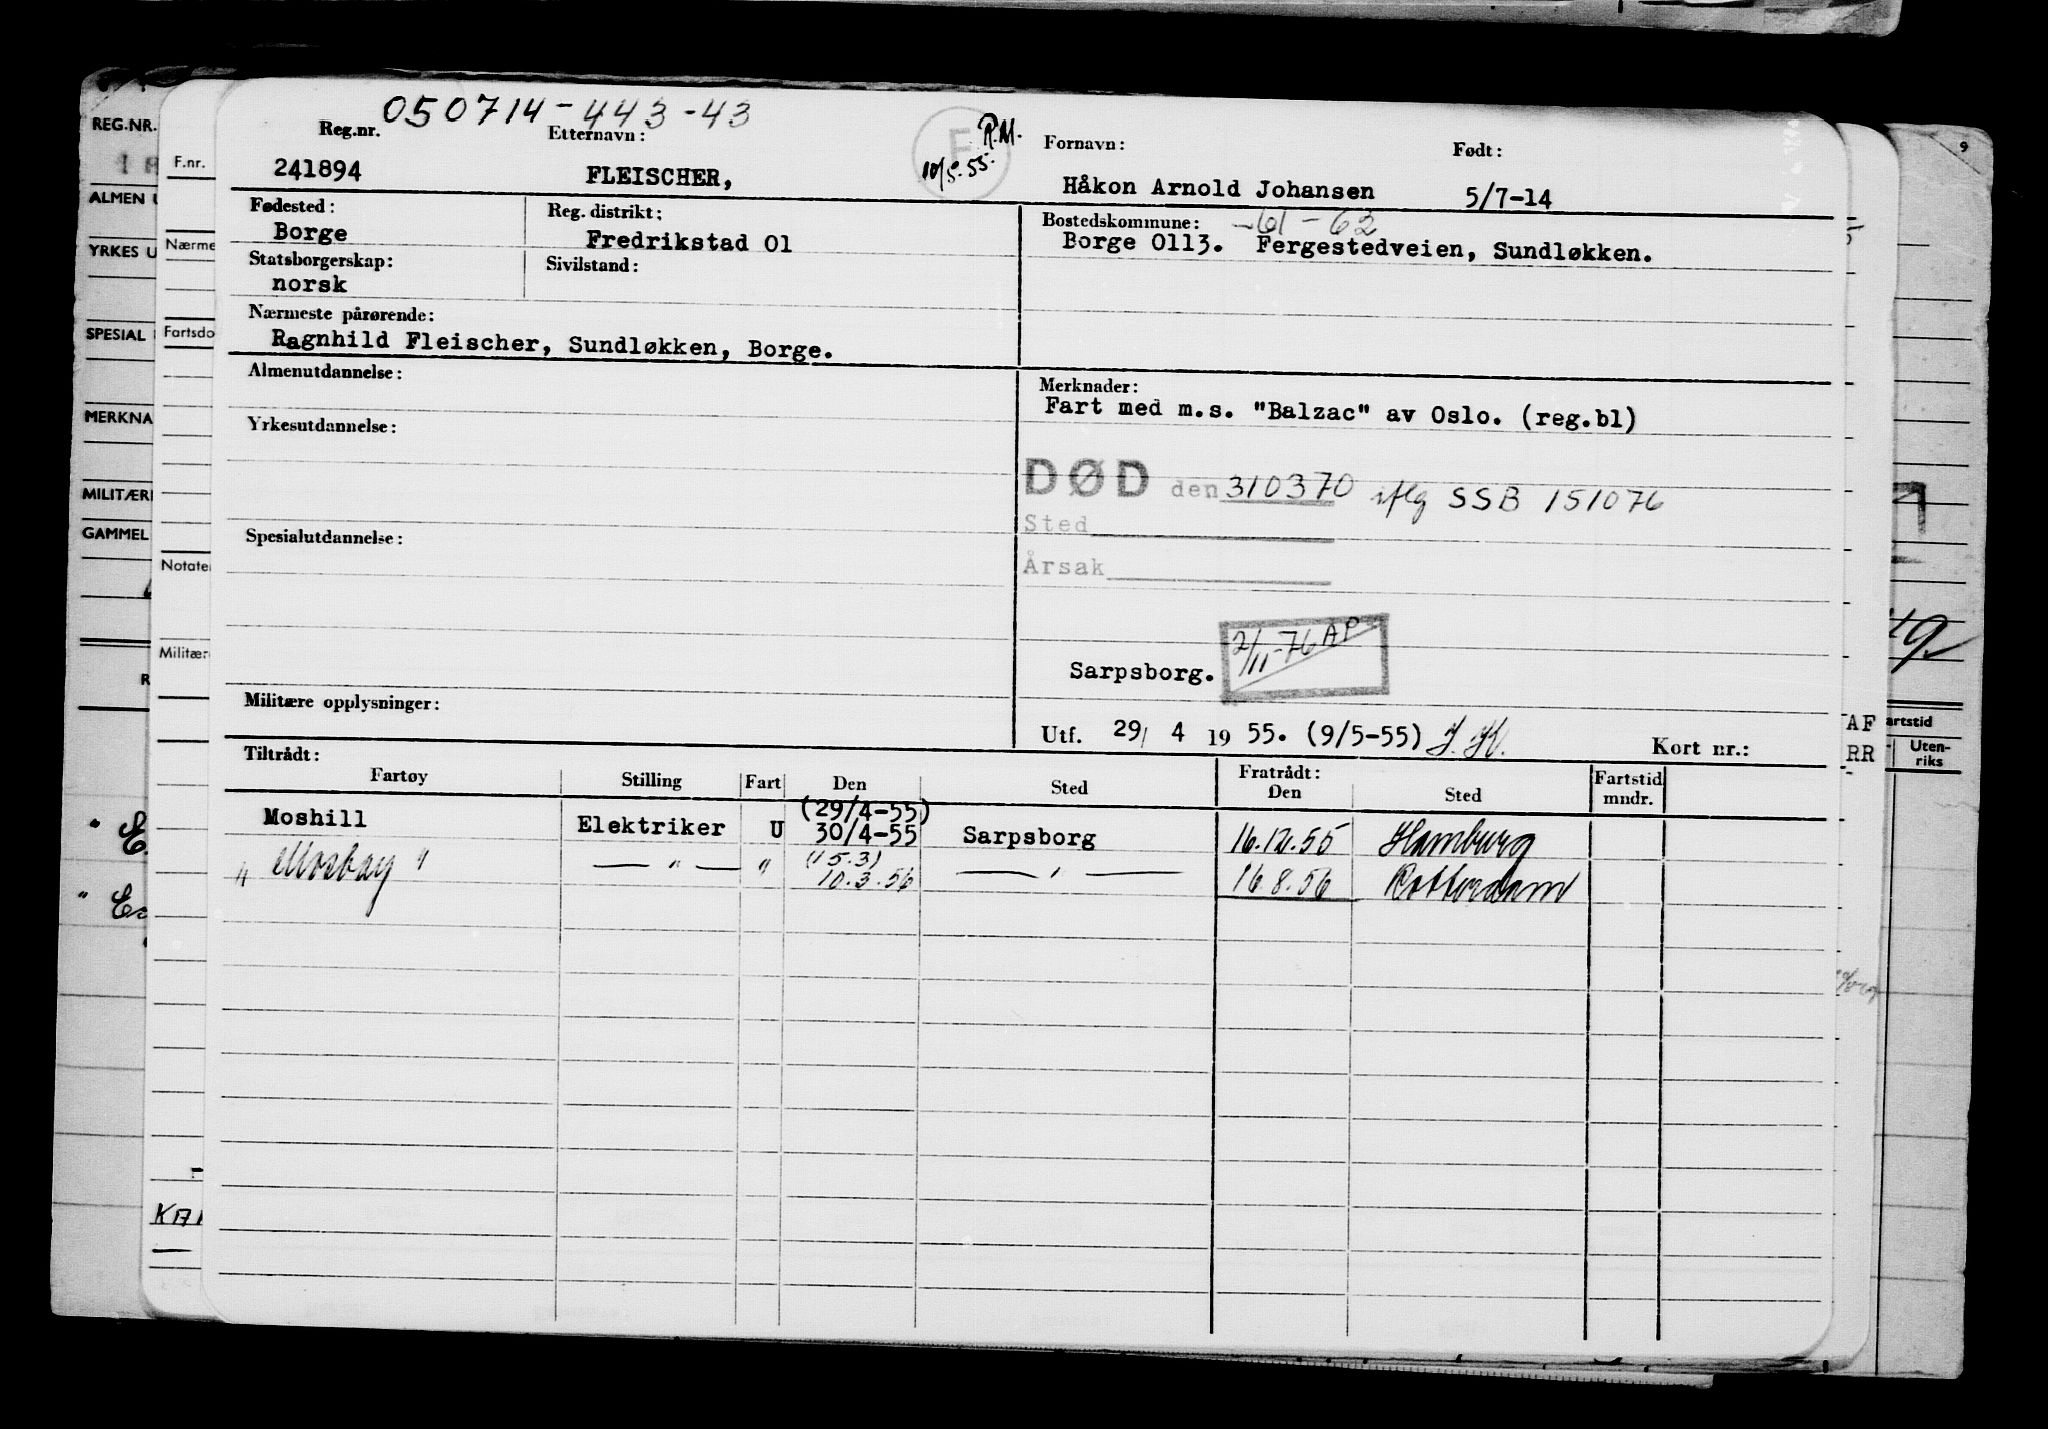 050714-443-43
Reg.nr. Etternavn: F R.M. Fornavn: Født:
241894 FLEISCHER, 10/5-55. Håkon Arnold Johansen 5/7-14
Fødested: Reg. distrikt: Bostedskommune: -61-62
Borge Fredrikstad 01 Borge 0113. Fergestedveien, Sundløkken.
Statsborgerskap: Sivilstand:
norsk
Nærmeste pårørende:
Ragnhild Fleischer, Sundløkken, Borge.
Almenutdannelse: Merknader:
Fart med m.s. "Balzac" av Oslo. (reg.bl)
Yrkesutdannelse:
DØD den 310370 iflg SSB 151076
Sted
Spesialutdannelse:
Årsak
2/11-76 AP
Sarpsborg.
Militære opplysninger:
Utf. 29/ 4 1955. (9/5-55) Kort nr.:
Tiltrådt: Fratrådt:
Fartøy Stilling Fart Den Sted Den Sted Fartstid mndr.
(29/4-55)
Moshill Elektriker U 30/4-55 Sarpsborg 16.12.55 Hamburg
(15.3)
" Mosbay " — " — " 10.3.56 — " — 16.8.56 Rotterdam
REG.NR.
ALMEN U
YRKES U
SPESIAL
MERKNA
MILITÆR
GAMMEL
F.nr.
Nærme
Fartsdo
Notater
Militær
R
KAR
9
AF
RR
artstid
Uten-
riks